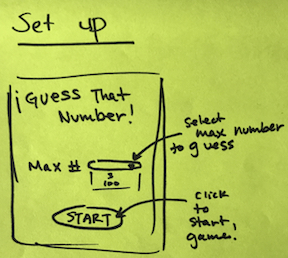 Set up
¡Guess That
Number!
Max #
3
100
START
select
max number
to guess
click
to
start
game.